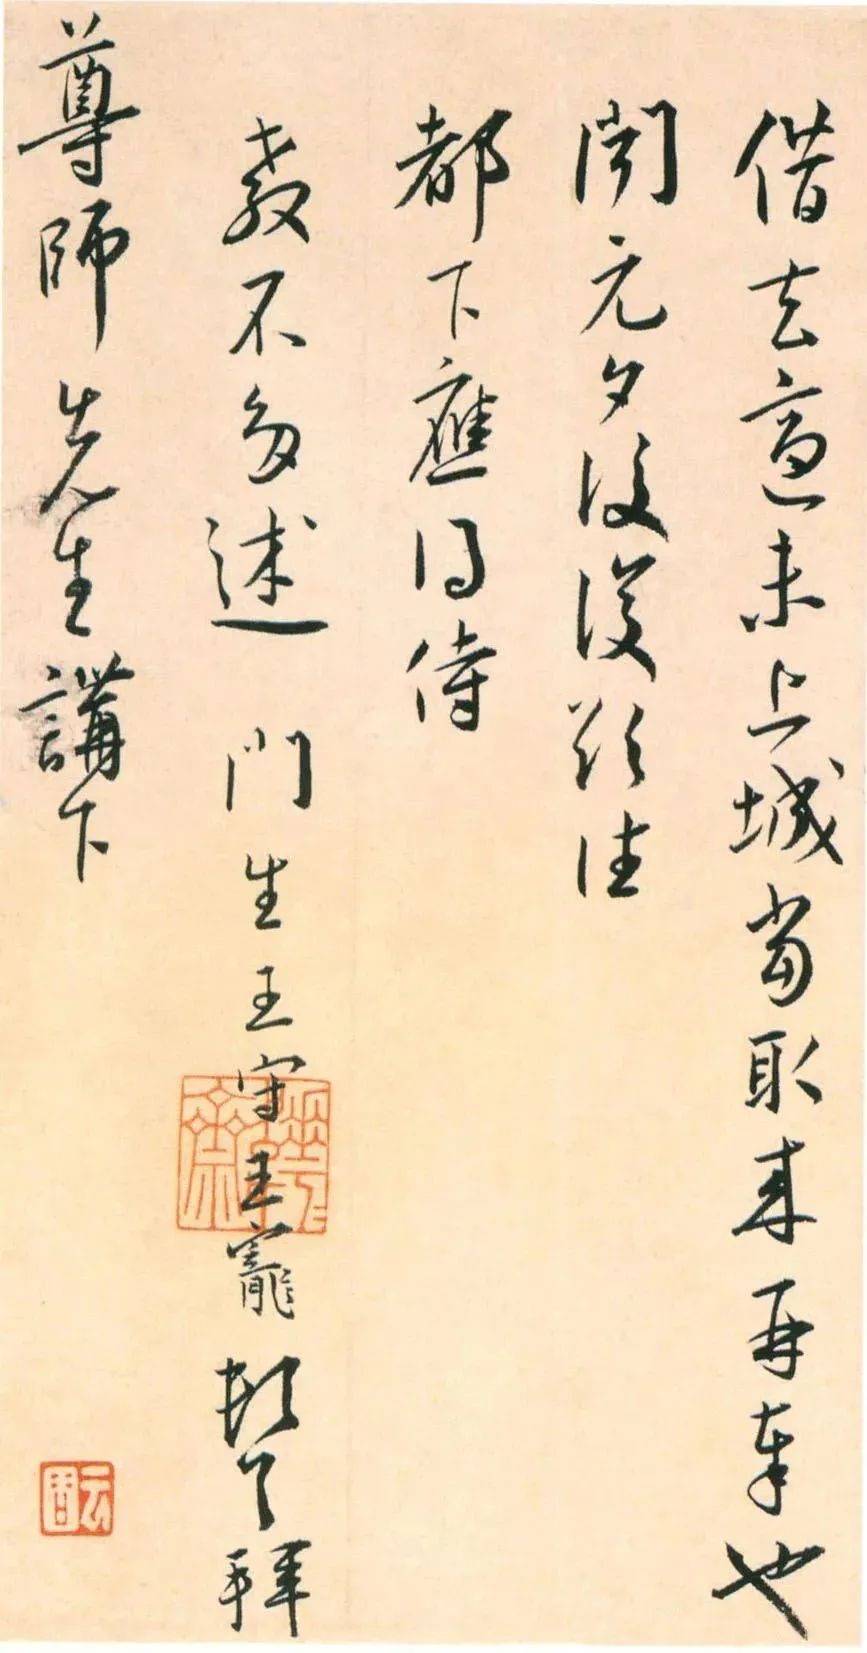 借去意未上城當取來再奉也
聞元夕後復欲往
都下應得侍
教不多述 門生王守王寵頓首拜
尊師先生講下